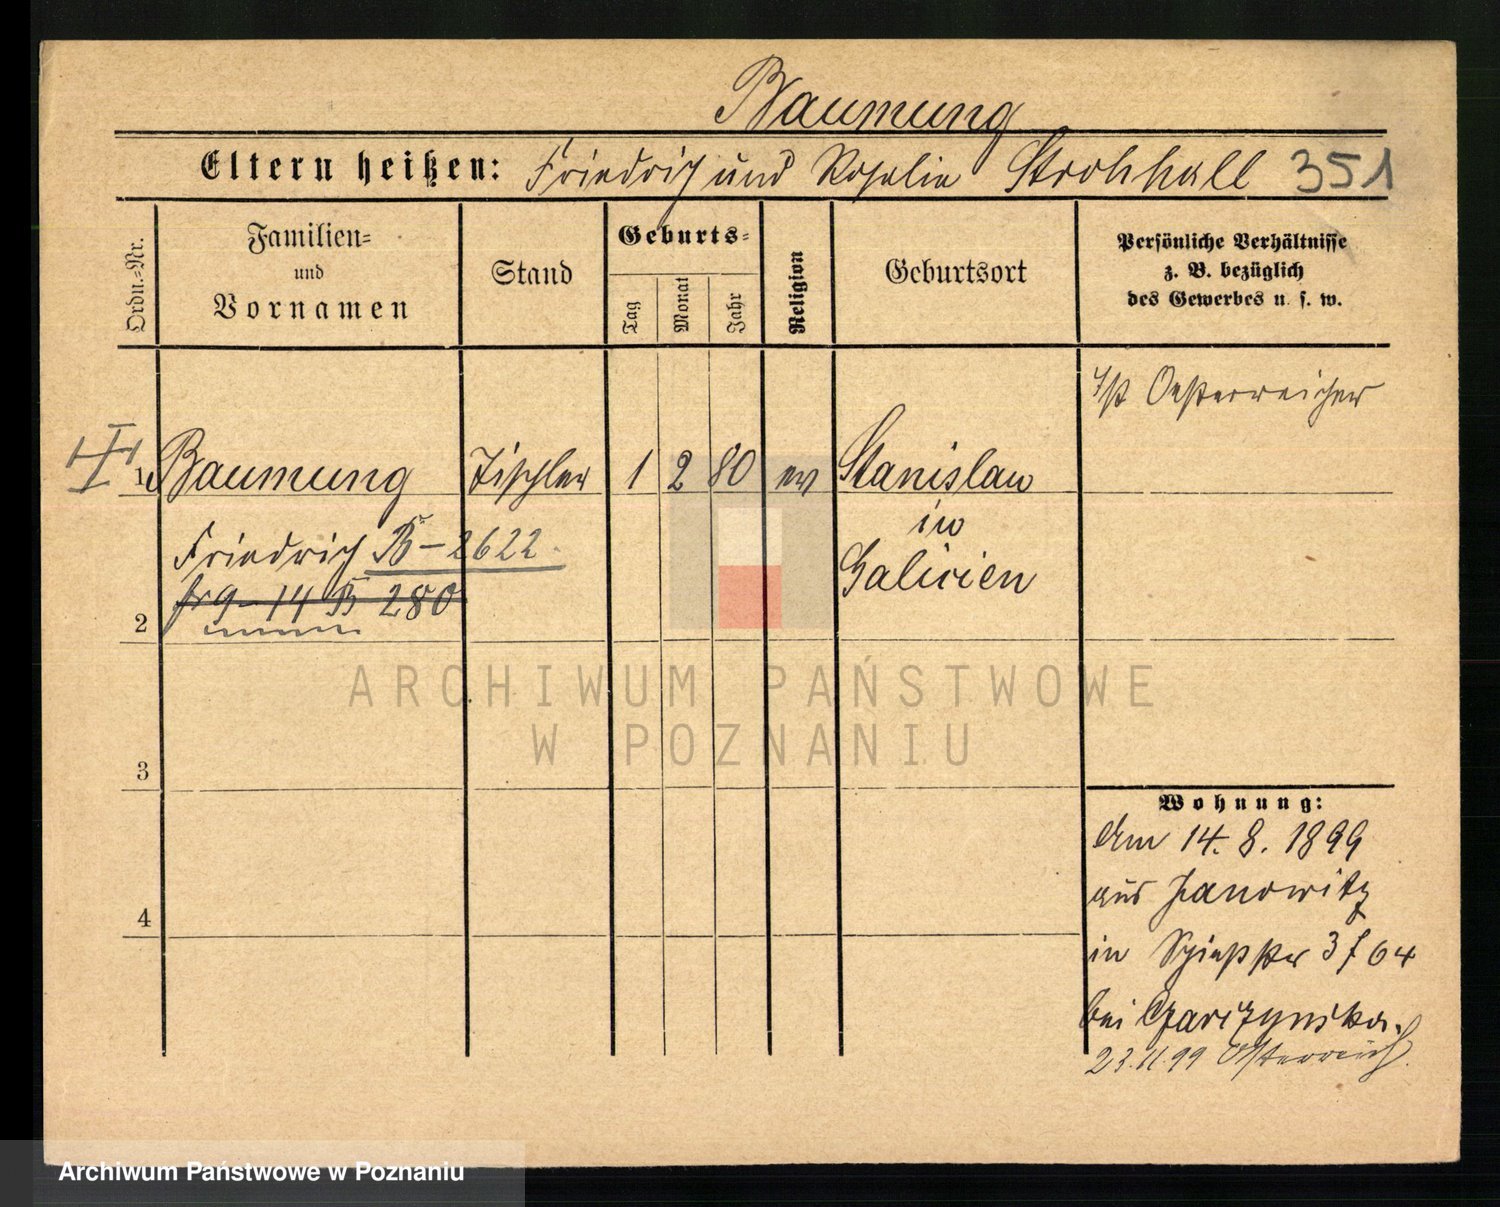 Baumung
Eltern heißen: Friedrich und Rosalie Strohhall 351
Ordn.=Nr.
Familien=
und
Vornamen
Stand
Geburts=
Tag
Monat
Jahr
Religion
Geburtsort
Persönliche Verhältnisse
z. B. bezüglich
des Gewerbes u. s. w.
Ist Oesterreicher
1 Baumung Tischler 1 2 80 ev Stanislau
in
Friedrich B-2622.
Galicien
9-14 B 280
2
ARCHIWUM PAŃSTWOWE
W POZNANIU
3
Wohnung:
Am 14. 8. 1899
aus Janowitz
4
in 3 f 64
bei
23.11.99 Österreich.
Archiwum Państwowe w Poznaniu